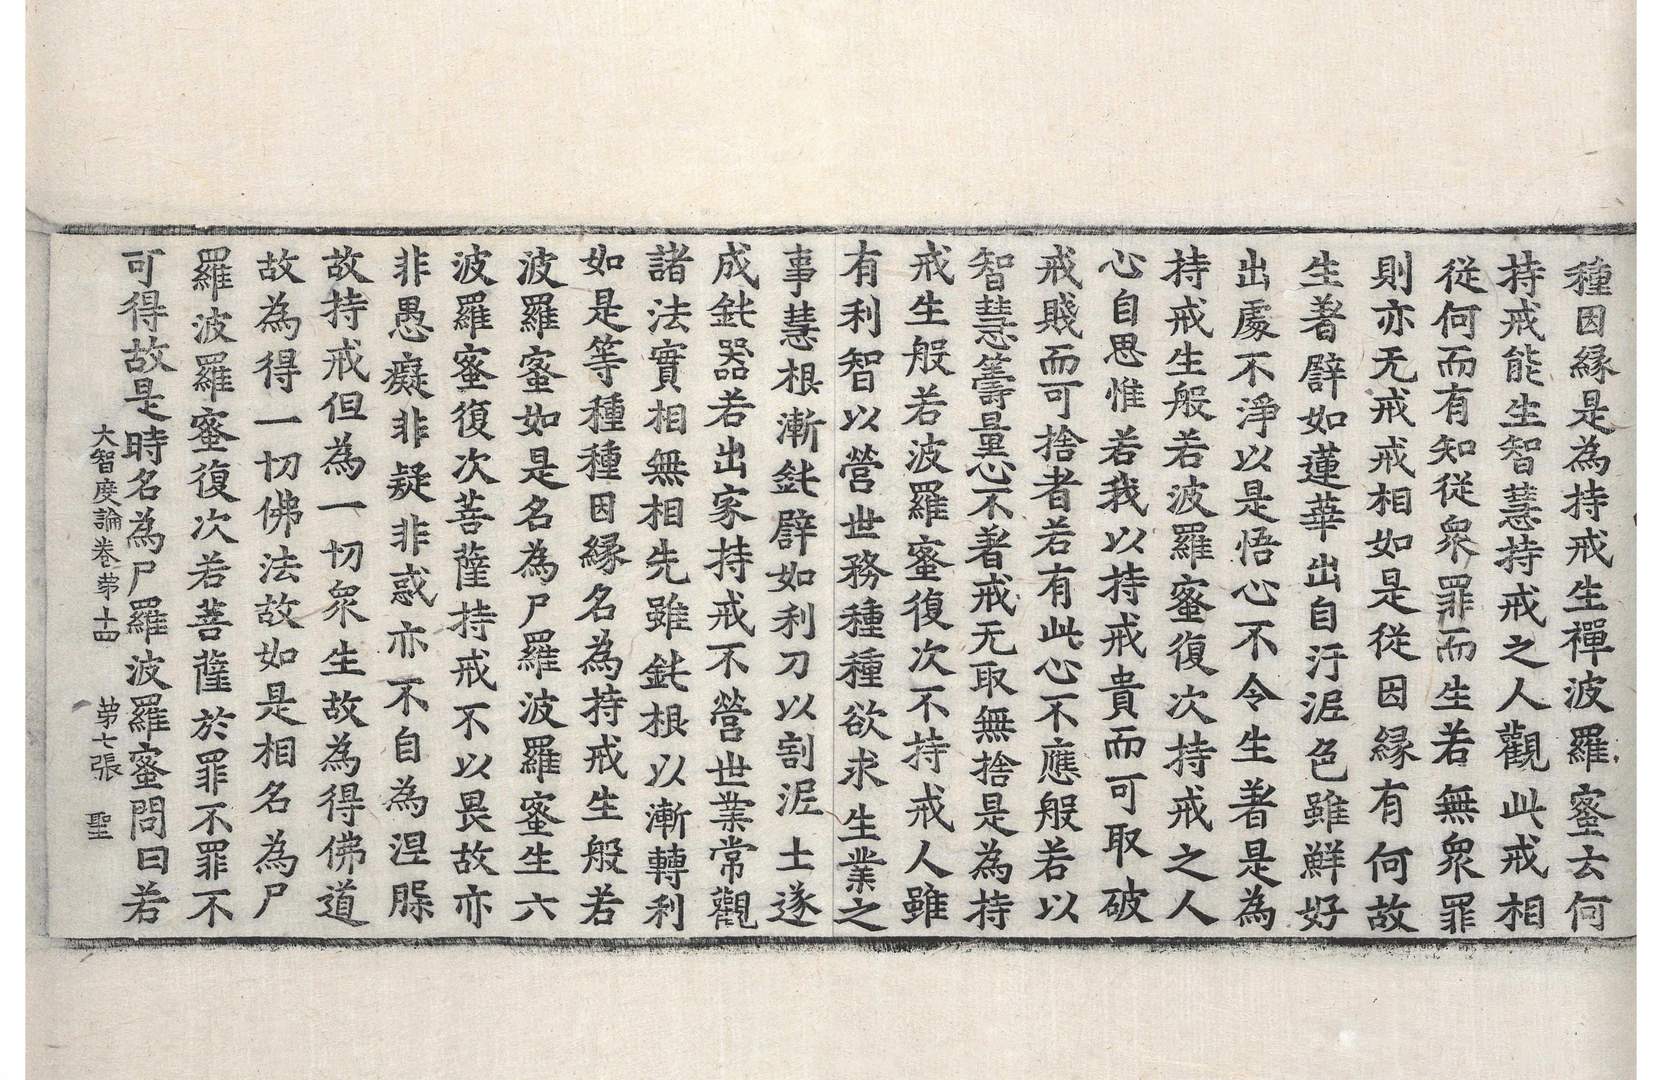 種因緣是為持戒生禪波羅蜜云何
持戒能生智慧持戒之人觀此戒相
從何而有知從衆罪而生若無衆罪
則亦无戒戒相如是從因緣有何故
生著譬如蓮華出自汙泥色雖鮮好
出處不淨以是悟心不令生著是為
持戒生般若波羅蜜復次持戒之人
心自思惟若我以持戒貴而可取破
戒賤而可捨者若有此心不應般若以
智慧籌量心不著戒无取無捨是為持
戒生般若波羅蜜復次不持戒人雖
有利智以營世務種種欲求生業之
事慧根漸鈍譬如利刀以割泥土遂
成鈍器若出家持戒不營世業常觀
諸法實相無相先雖鈍根以漸轉利
如是等種種因緣名為持戒生般若
波羅蜜如是名為尸羅波羅蜜生六
波羅蜜復次菩薩持戒不以畏故亦
非愚癡非疑非惑亦不自為涅槃
故持戒但為一切衆生故為得佛道
故為得一切佛法故如是相名為尸
羅波羅蜜復次若菩薩於罪不罪不
可得故是時名為尸羅波羅蜜問曰若
大智度論卷苐十四 苐七張 聖